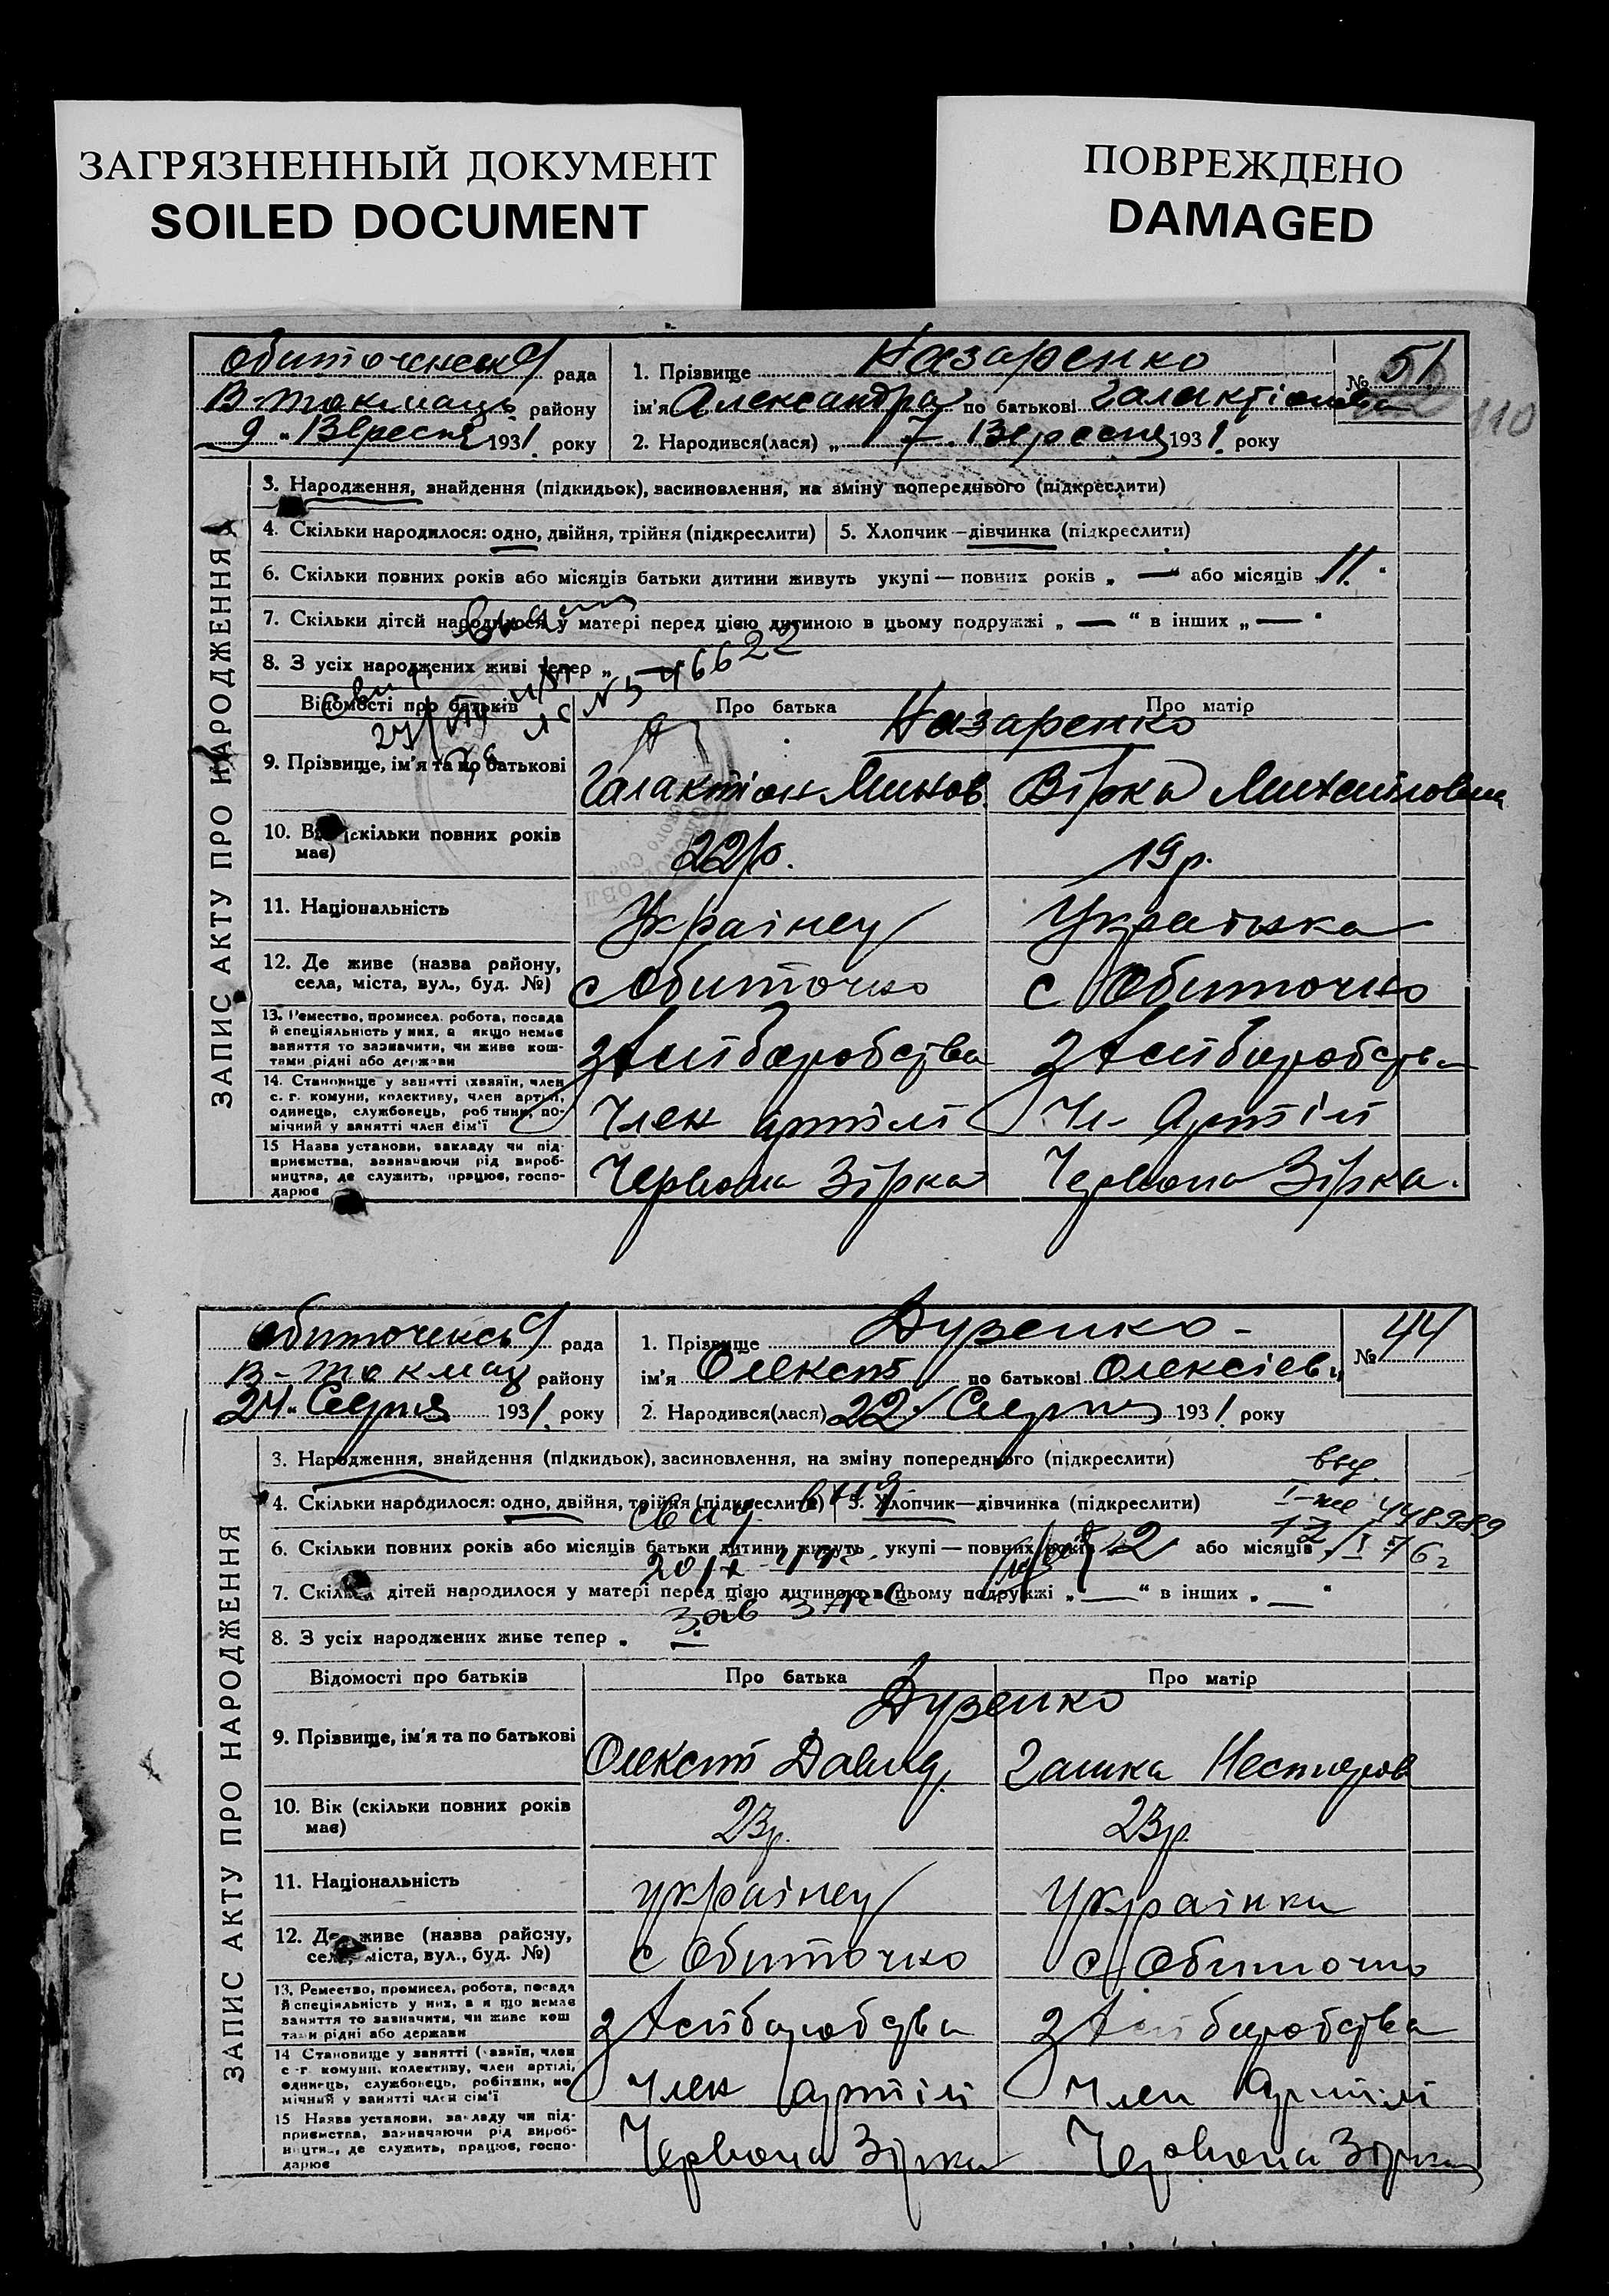 ЗАГРЯЗНЕННЫЙ ДОКУМЕНТ
SOILED DOCUMENT
ПОВРЕЖДЕНО
DAMAGED
рада
В-Токмаць району
9 " Вересня 1931. року
1. Прізвище Назаренко
ім'я Александра по батькові Галактіонова
2. Народився(лася) „ 7. Вересня 1931. року
№ 51
110
ЗАПИС АКТУ ПРО НАРОДЖЕННЯ
3. Народження, знайдення (підкидьок), засиновлення, на зміну попереднього (підкреслити)
4. Скільки народилося: одно, двійня, трійня (підкреслити) 5. Хлопчик—дівчинка (підкреслити)
6. Скільки повних років або місяців батьки дитини живуть укупі — повних років „ — " або місяців „ 11. "
7. Скільки дітей народилося у матері перед цією дитиною в цьому подружжі „ — " в інших „ — "
8. З усіх народжених живі тепер „ —
Відомості про батьків Про батька Про матір
Назаренко
9. Прізвище, ім'я та по батькові Галактіон Минов. Вірка Михайловна
10. Вік (скільки повних років має) 22р. 19р.
11. Національність Українец Українка
12. Де живе (назва району, села, міста, вул., буд. №) с Обиточно с Обиточно
13. Ремество, промисел, робота, посада
й спеціяльність у них, а якщо немає
заняття то зазначити, чи живе кош-
тами рідні або держави
14. Становище у занятті (хазяїн, член
с. г. комуни, колективу, член артілі,
одинець, службовець, робітник, по-
мічний у занятті член сім'ї Член артілі Чл. Артілі
15 Назва установи, закладу чи під-
приємства, зазначаючи рід вироб-
ництва, де служить, працює, госпо-
дарює Червона Зірка Червона Зірка.
рада
В-Токмац району
24 " Серпня 1931. року
1. Прізвище Дузенко
ім'я Олексій по батькові Олексіев
2. Народився(лася) 22 Серпня 1931. року
№ 44
ЗАПИС АКТУ ПРО НАРОДЖЕННЯ
3. Народження, знайдення (підкидьок), засиновлення, на зміну попереднього (підкреслити)
4. Скільки народилося: одно, двійня, трійня (підкреслити) 5. Хлопчик—дівчинка (підкреслити)
448989
6. Скільки повних років або місяців батьки дитини живуть укупі — повних років 2 або місяців
7. Скільки дітей народилося у матері перед цією дитиною в цьому подружжі „ — " в інших „ — "
8. З усіх народжених живе тепер „ —
Відомості про батьків Про батька Про матір
Дузенко
9. Прізвище, ім'я та по батькові Олексій Давид. Галька Нестеров
10. Вік (скільки повних років має) 23р. 23р
11. Національність українец Українка
12. Де живе (назва району, села, міста, вул., буд. №) с Обиточно с Обиточно
13. Ремество, промисел, робота, посада
й спеціяльність у них, а якщо немає
заняття то зазначити, чи живе кош
тами рідні або держави
14 Становище у занятті (хазяїн, член
с-г. комуни, колективу, член артілі,
одинець, службовець, робітник, по
мічний у занятті член сім'ї Член артілі Член Артілі
15 Назва установи, закладу чи під-
приємства, зазначаючи рід вироб-
ництва, де служить, працює, госпо-
дарює Червона Зірка Червона Зірка